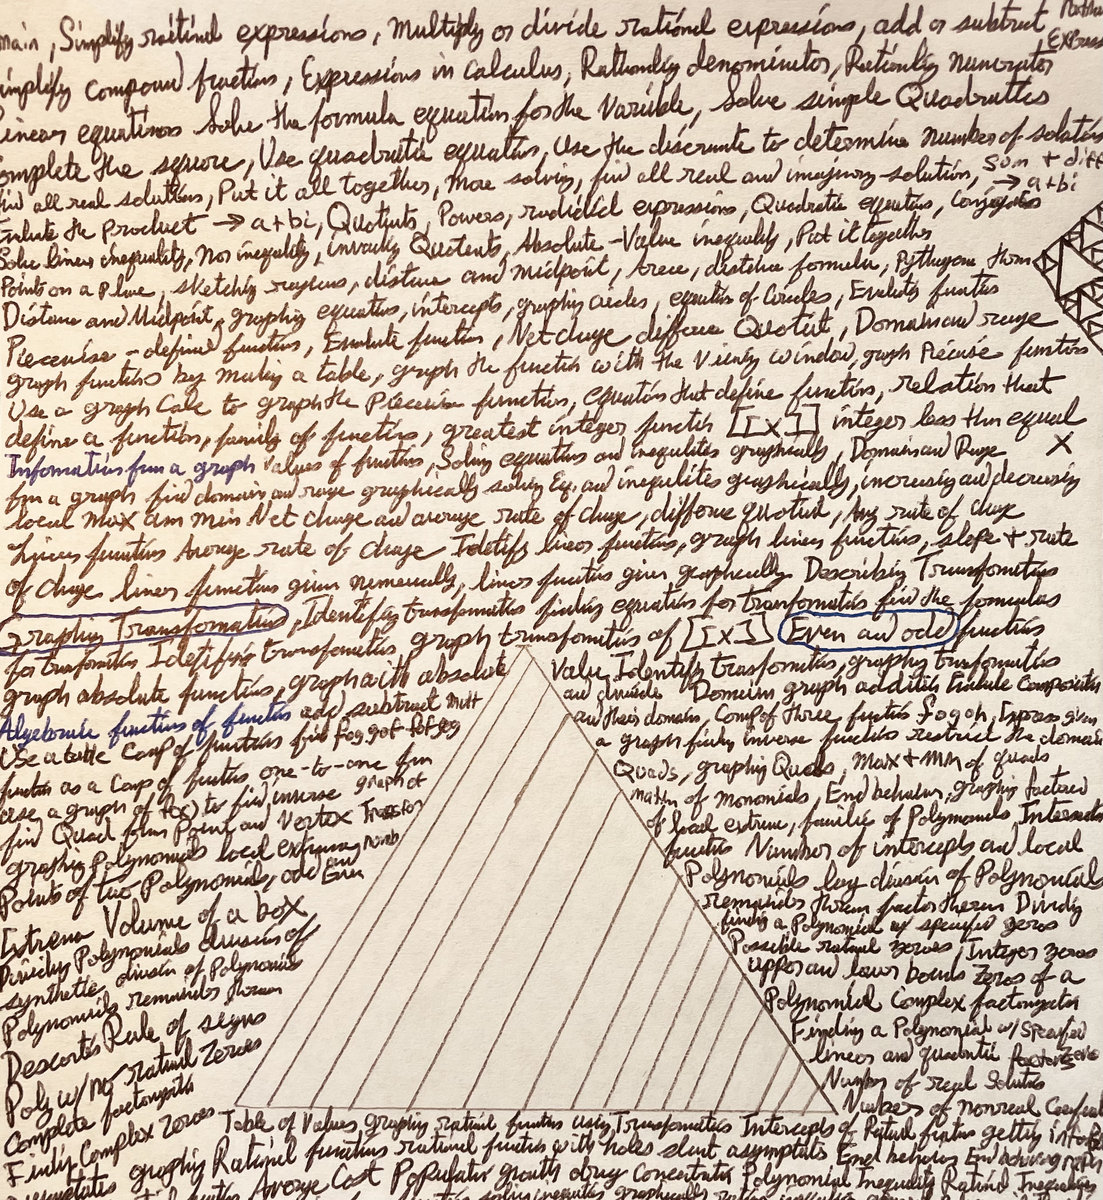 main, Simplify rational expressions, Multiply or divide rational expressions, add or subtract
simplify compound fractions, Expressions in calculus, Rationalize denominator, Rationalize numerator
Linear equations Solve the formula equation for the Variable, Solve simple Quadratics
complete the square, Use quadratic equation, Use the discriminate to determine number of solutions
find all real solutions, Put it all together, more solving, find all real and imaginary solution, Sum + diff
Evaluate the Product → a+bi, Quotients, Powers, radicial expressions, Quadratic equations, Conjugates → a+bi
Solve linear inequality, Non inequality, involving Quotents, Absolute-Value inequality, Put it together
Points on a Plane, sketching regions, distance and midpoint, Area, distance formula, Pythagorean thrm
Distance and Midpoint, graphing equations, intercepts, graphing circles, equation of Circles, Evaluate functions
Piecewise-defined functions, Evaluate functions, Net change, difference Quotient, Domain and range
graph functions by making a table, graph the function with the viewing window, graph Piecwise functions
Use a graph Calc to graph the Piecewise function, equations that define functions, relation that
define a function, family of functions, greatest integer function [[x]] integer less than equal
Information from a graph Values of functions, Solving equations and inequalites graphically, Domain and Range X
from a graph find domain and range graphically solving Eq. and inequalites graphically, increasing and decreasing
local max and min Net change and average rate of change, difference quotient, Avg rate of change
Linear functions Average rate of change Identify linear functions, graph linear functions, slope + rate
of change linear functions given numerically, linear functions given graphically Describing Transformations
graphing Transformations, Identifying transformations finding equations for transformations find the formulas
for transformations Identifying transformations, graph transformations of [[x]] Even and odd functions
graph absolute functions, graph with absolute Value Identify transformations, graphing transformations
Algebraic functions of functions add subtract mult and divide Domain graph addition Evaluate Composition
Use a table Comp of functions find fog gof fof gog and their domain, Comp of three functions fogoh, Express given
function as a Comp of functions one-to-one fun a graph finding inverse functions restrict the domain
use a graph of f(x) to find inverse graph of Quads, graphing Quads, max + min of quads
find Quad form Point and Vertex Transfor mation of Monomials, End behavior, graphing factored
graphing Polynomials local extrema Numb of local extrema, families of Polynomials Intersects
Points of two Polynomials, odd Even functions Number of intercepts and local
Extrema Volume of a box Polynomials long division of Polynomials
Dividing Polynomials division of remainder thrum factor therum Dividing
synthetic division of Polynomials finding a Polynomial w/ specified zeros
Polynomials remainder thrum Possible rational zeroes, Integer zeros
Descartes Rule of signs upper and lower bounds Zeros of a
Poly w/ no rational zeroes Polynomial Complex factorization
Complete factorization Finding a Polynomial w/ Specified
Finding Complex zeroes linear and quadratic factors
Number of real Solutions
Numbers of nonreal
Table of Values graphing rational functions using Transformations Intercepts of Rational functions getting info
graphing Rational functions rational functions with holes slant asymptote End behavior End behavior
Average Cost Population growth drug Concentration Polynomial Inequality Rational Inequality